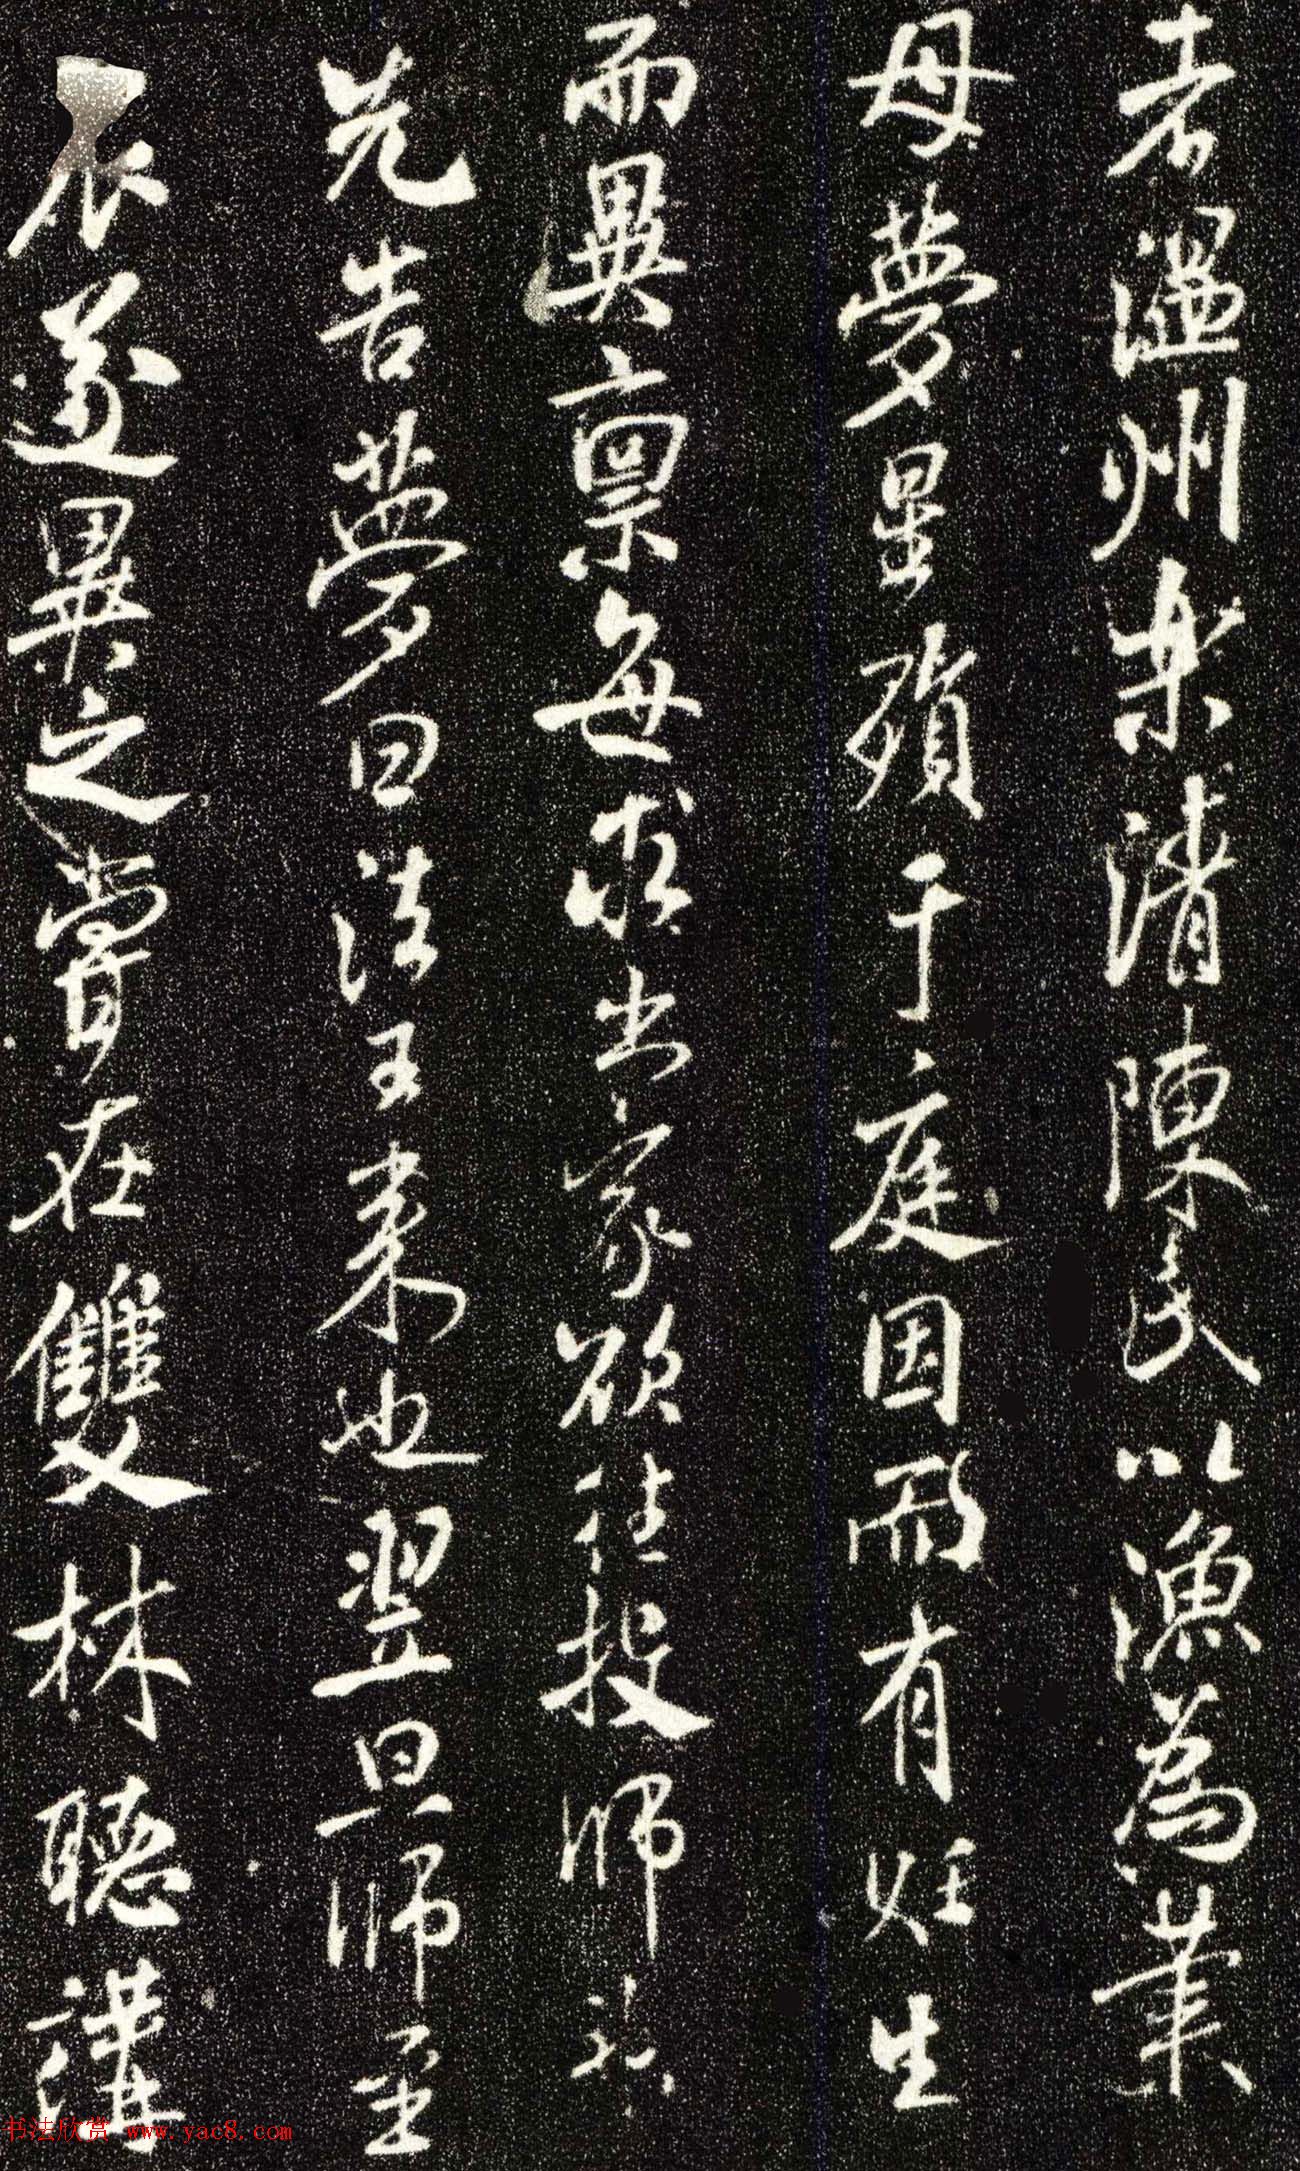 者溫州樂清陳氏以漁為業
母夢星殞于庭因而有妊生
而異稟每求出家欲往投師
先告夢曰法王來也翌旦師至
遂異之嘗在雙林聽講
书法欣赏 www.yac8.com